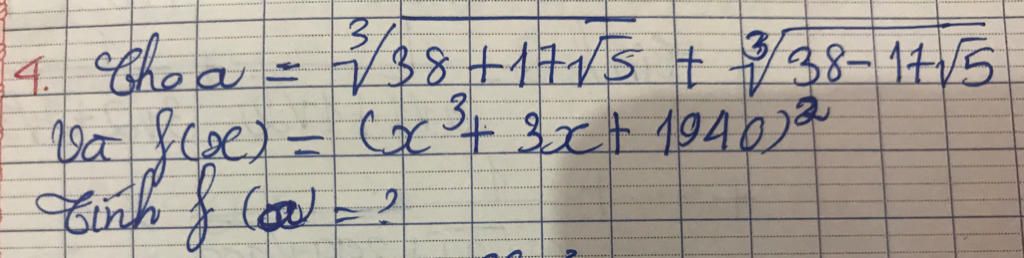 4. Cho a = ∛(38 + 17√5) + ∛(38 - 17√5)
Và f(x) = (x³ + 3x + 1940)²
Tính f(a) = ?